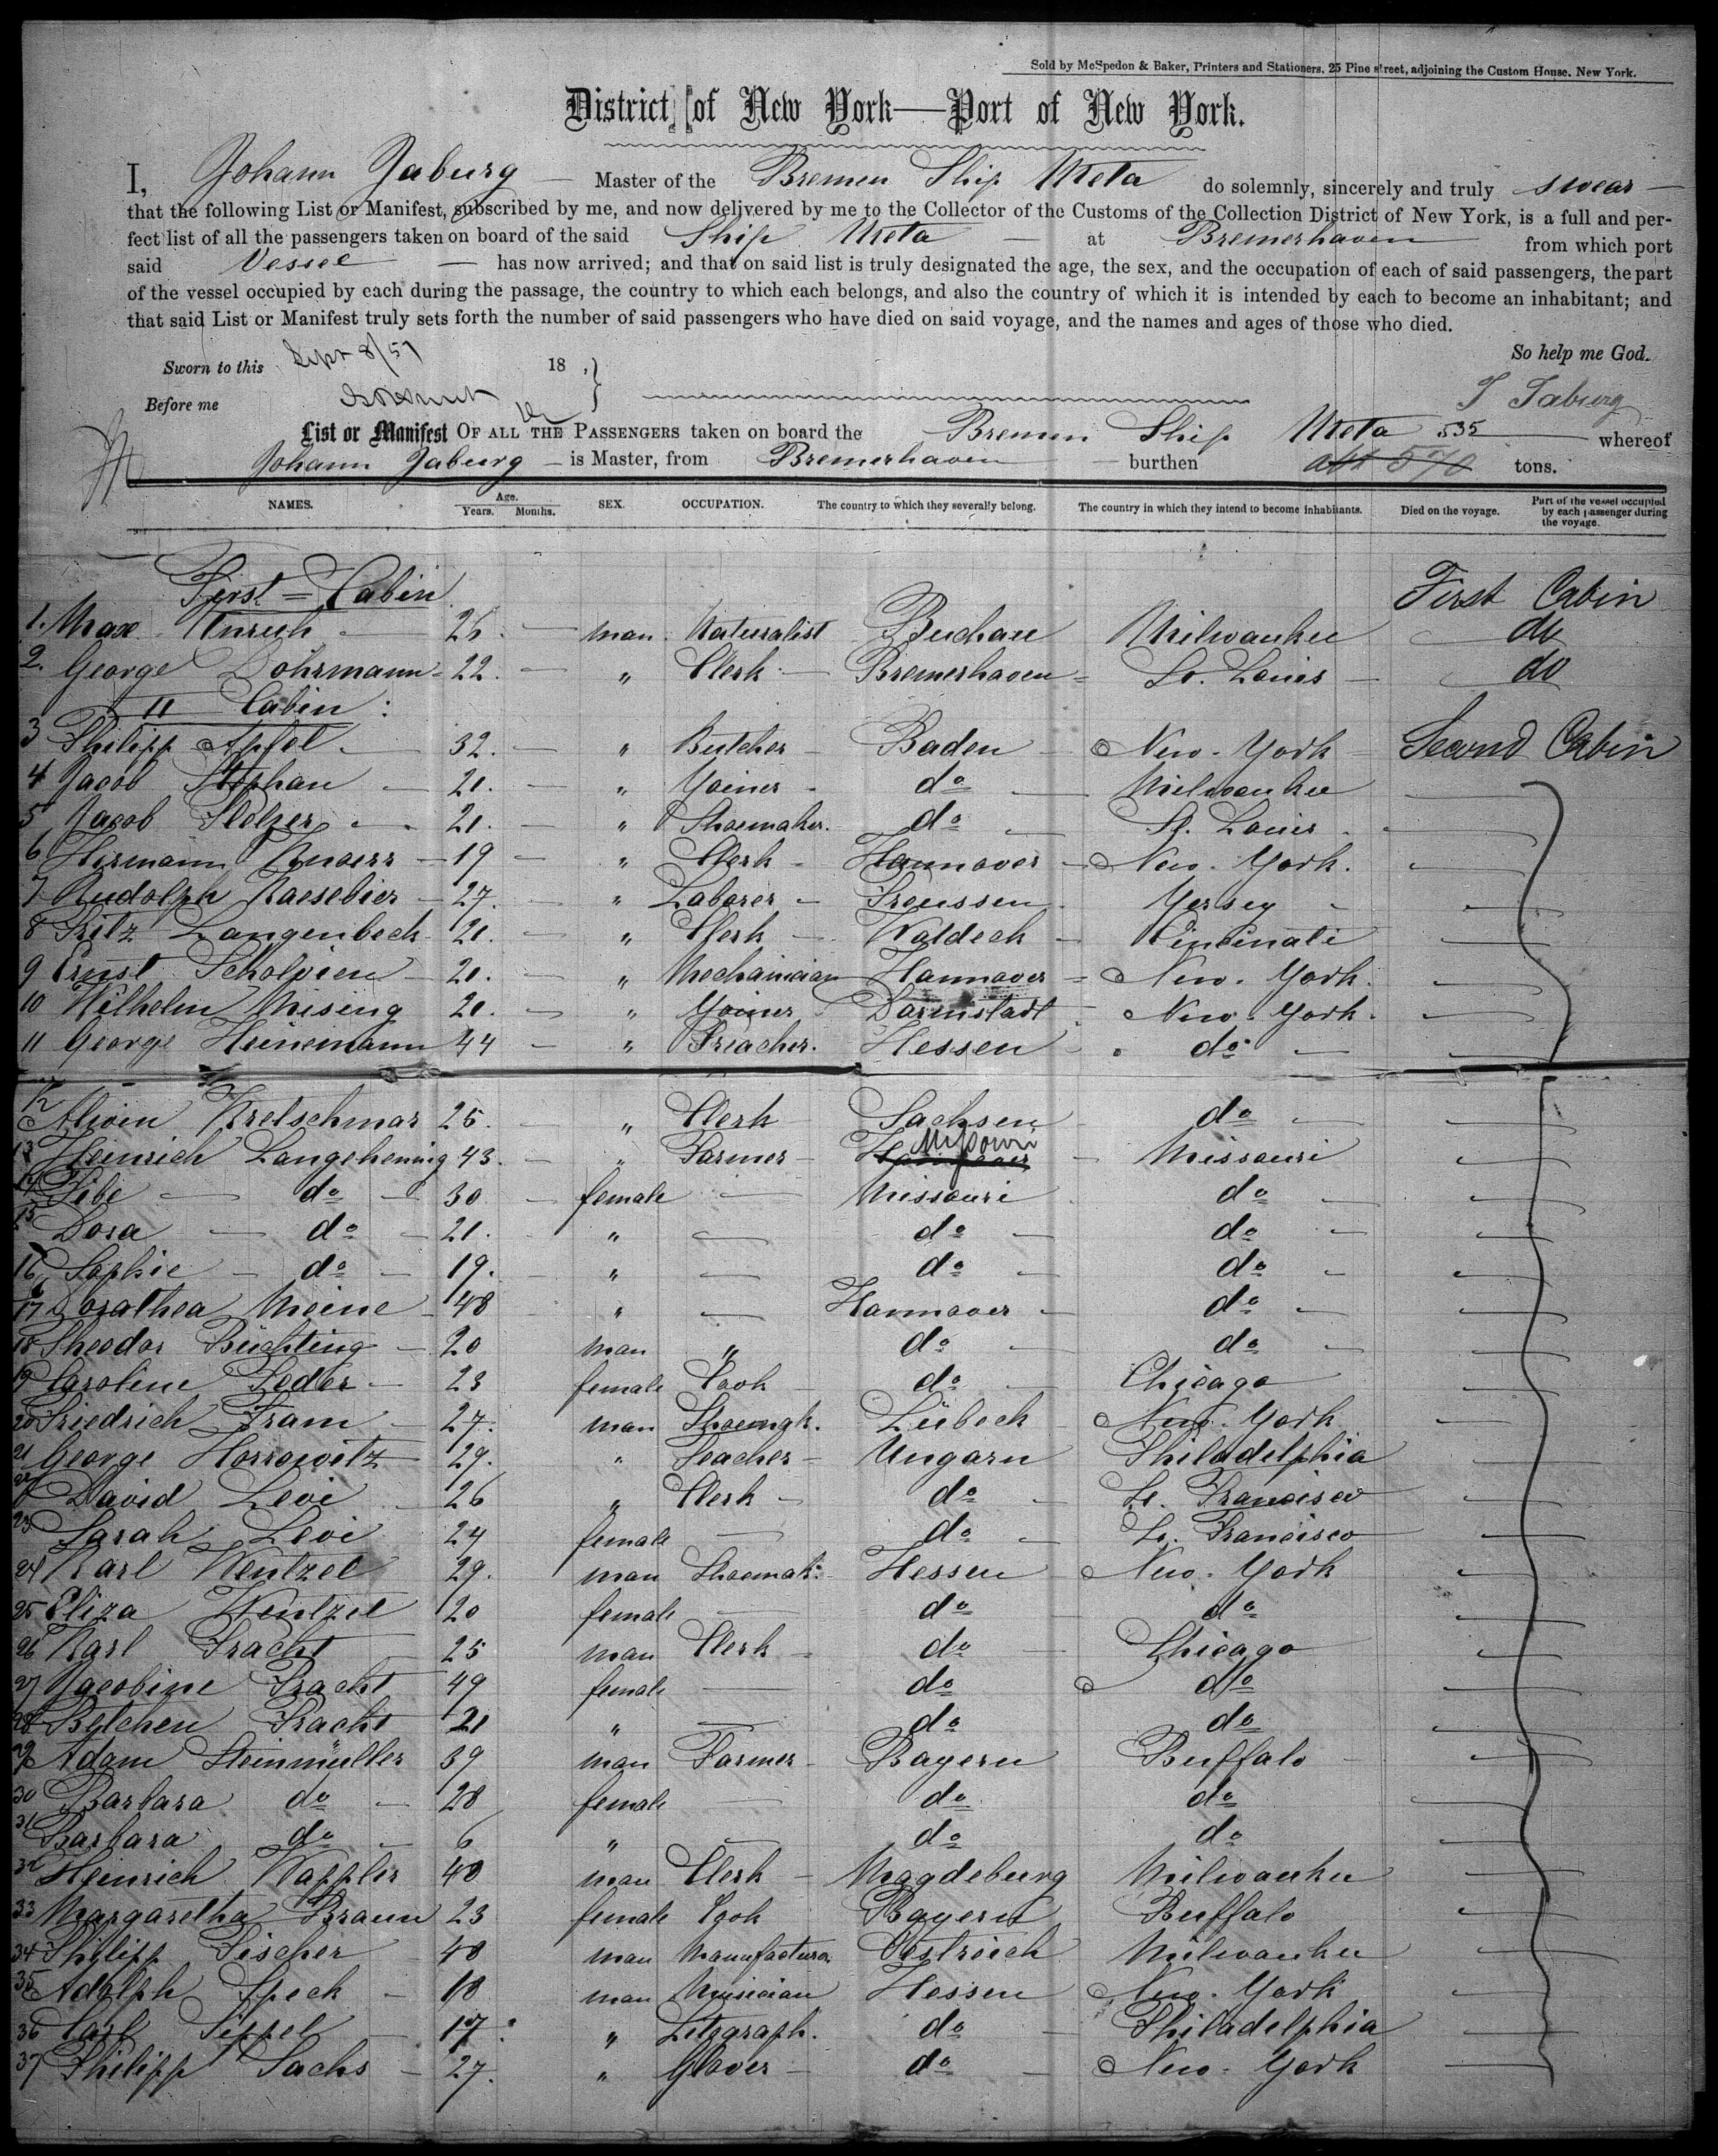 Sold by McSpedon & Baker, Printers and Stationers, 25 Pine street, adjoining the Custom House, New York.
District of New York—Port of New York.
I, Johann Jaburg — Master of the Bremen Ship Meta do solemnly, sincerely and truly swear —
that the following List or Manifest, subscribed by me, and now delivered by me to the Collector of the Customs of the Collection District of New York, is a full and per-
fect list of all the passengers taken on board of the said Ship Meta — at Bremerhaven from which port
said Vessel — has now arrived; and that on said list is truly designated the age, the sex, and the occupation of each of said passengers, the part
of the vessel occupied by each during the passage, the country to which each belongs, and also the country of which it is intended by each to become an inhabitant; and
that said List or Manifest truly sets forth the number of said passengers who have died on said voyage, and the names and ages of those who died.
So help me God.
Sworn to this Sept 8/57 18 ,
Before me
J Jaburg
List or Manifest OF ALL THE PASSENGERS taken on board the Bremen Ship Meta 535 — whereof
Johann Jaburg — is Master, from Bremerhaven — burthen 570 tons.
NAMES. Age. Years. Months. SEX. OCCUPATION. The country to which they severally belong. The country in which they intend to become inhabitants. Died on the voyage. Part of the vessel occupied by each passenger during the voyage.
First = Cabin First Cabin
1. Max Unruh — 26. — man. Naturalist Buchau Milwaukee do
2. George Dohrmann - 22. — " Clerk — Bremerhaven = St. Louis — do
II Cabin :
3 Philipp Apfel. — 32. — " Butcher — Baden — New-York Second Cabin
4 Jacob Stephan — 21. — " Joiner - do — Milwaukee
5 Jacob Stelzer — 21. — " Shoemaker. do — St. Louis
6 Hermann Knoerr — 19 — " Clerk - Hannover — New-York.
7 Rudolph Kaesebier — 27. — " Laborer - Preussen Jersey
8 Fritz Langenbeck 21. — " Clerk — Waldeck — Cincinati
9 Ernst Scholvien — 21. — " Mechanician Hannover = New-York.
10 Wilhelm Mising 21. — " Joiner Darmstadt New-York.
11 George Heinemann 44 — " Preacher. Hessen do —
12 Alwin Kretschmar 25. — " Clerk Sachsen do —
13 Heinrich Langehennig 43. — " Farmer - Hannover Missouri — Missouri
14 Fibe — do — 30 - female — Missouri do —
15 Dora — do — 21. - " — do — do —
16 Sophie — do — 19. - " — do — do —
17 Dorathea Meine 48 " — Hannover — do —
18 Theodor Büchting — 20 man " do — do —
19 Caroline Feder — 23 female Cook do — Chicago
20 Friedrich Fram — 27. man Shoemak. Lübeck New-York
21 George Horrowitz 29. " Teacher - Ungarn Philadelphia
22 David Levi 26 " Clerk - do — St. Francisco
23 Sarah Levi 24 female — do — St. Francisco
24 Karl Wentzel 29. man Shoemak. Hessen New-York
25 Eliza Wentzel 20 female — do do
26 Karl Pracht 25 man Clerk do — Chicago
27 Jacobine Pracht 49 female — do do
28 Betchen Pracht 21 " — do do
29 Adam Steinmüller 39 man Farmer - Bayern Buffalo
30 Barbara do — 28 female — do do
31 Barbara do — 6 " — do do
32 Heinrich Wappler 48 man Clerk — Magdeburg Milwaukee
33 Margaretha Braun 23 female Cook Bayern Buffalo
34 Philipp Fischer — 48 man Manufacturer Oestreich Milwaukee
35 Adolph Speck — 18 man Musician Hessen New-York
36 Carl Sippel 17. " Litograph. do Philadelphia
37 Philipp Sachs — 27. " Glover — do — New-York